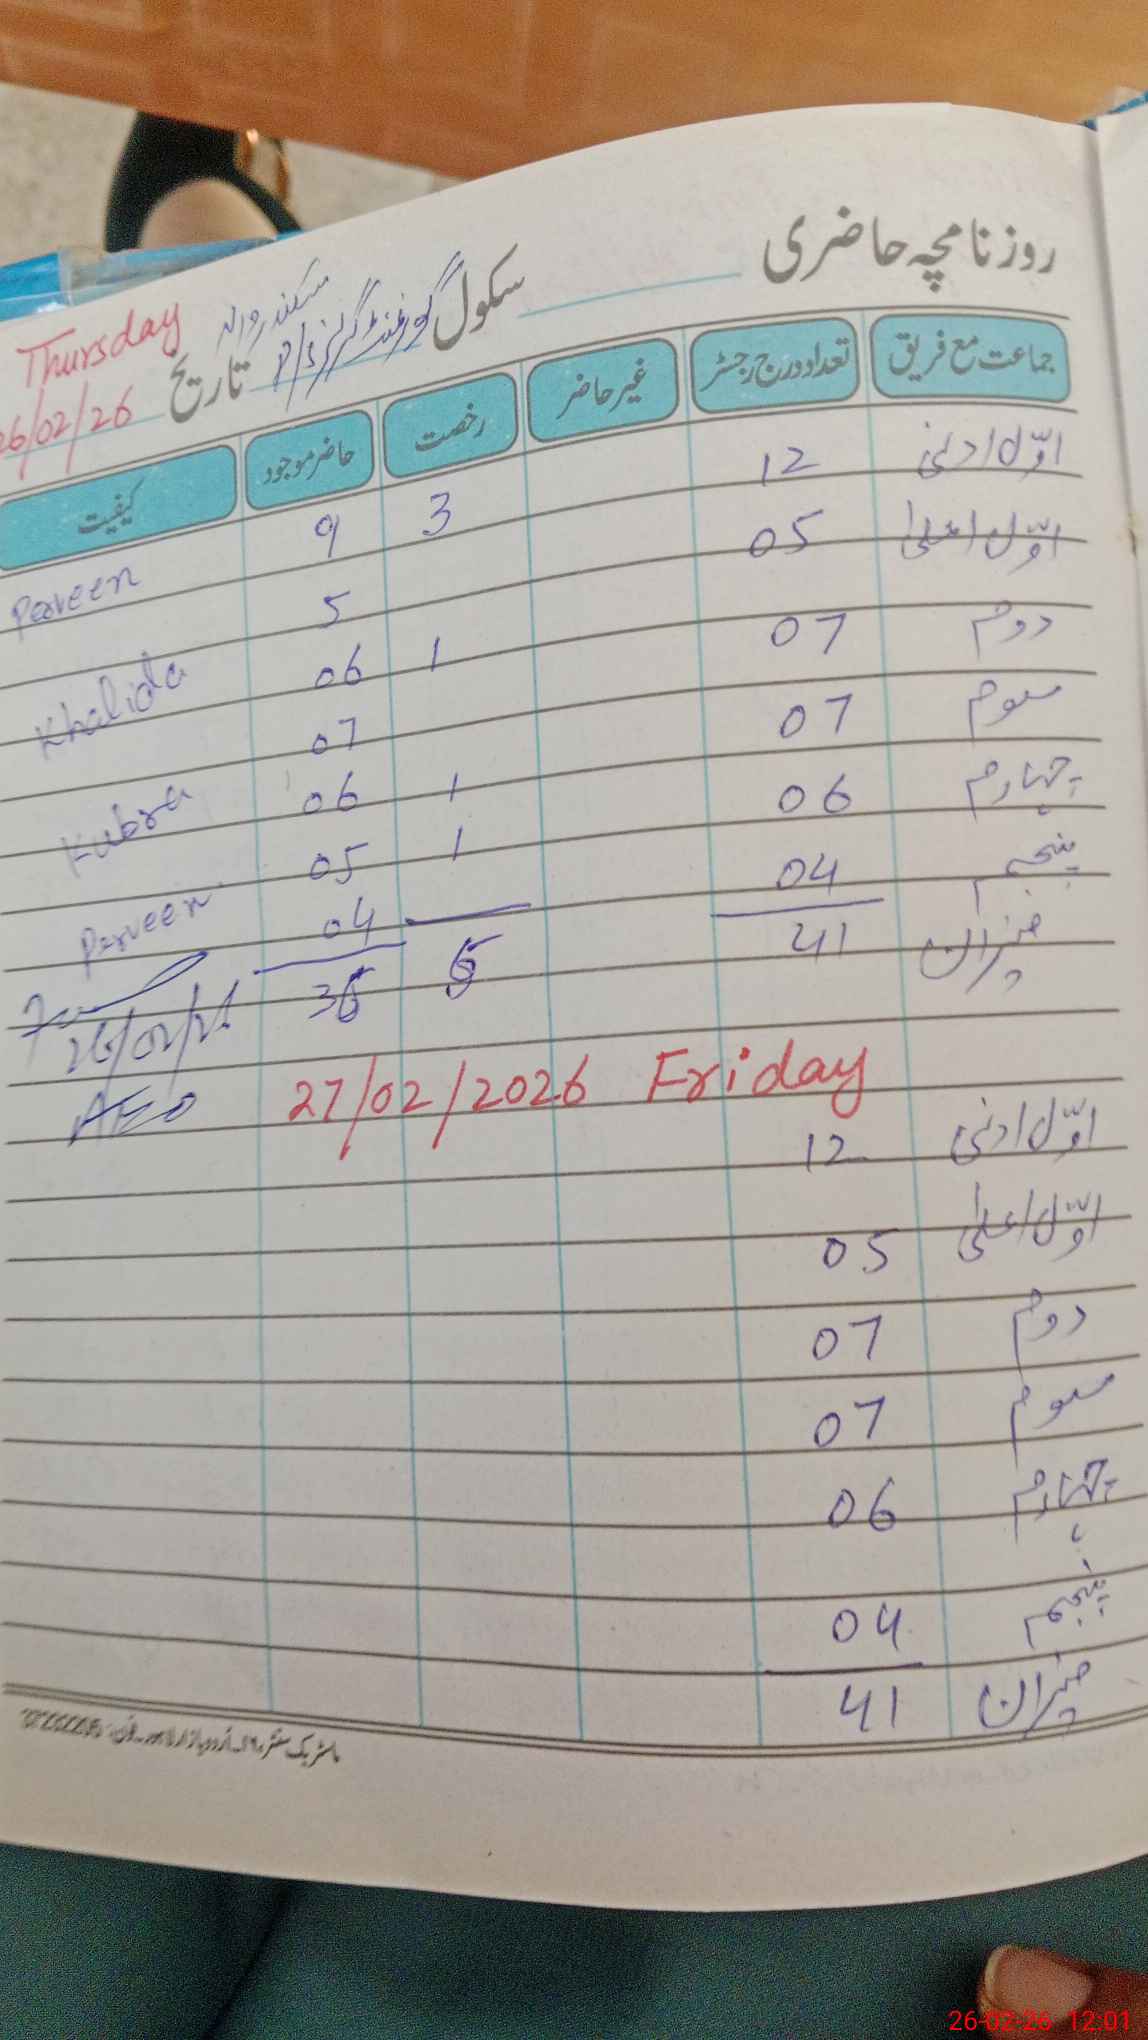 روزنامچہ حاضری
سکول گورنمنٹ گرلز P/S سکندروالہ تاریخ Thursday 26/02/26
جماعت مع فریق تعداد درج رجسٹر غیر حاضر رخصت حاضر موجود کیفیت
اوّل ادنیٰ 12 3 9 Perveen
اوّل اعلیٰ 05 5
دوم 07 1 06 Khalida
سوم 07 07
1 06 Kubra
چہارم 06 1 05
پنجم 04 04 Perveen
میزان 41 5 36
26/02/26
AEO
27/02/2026 Friday
اوّل ادنیٰ 12
اوّل اعلیٰ 05
دوم 07
سوم 07
چہارم 06
پنجم 04
میزان 41
26-02-26 12:01